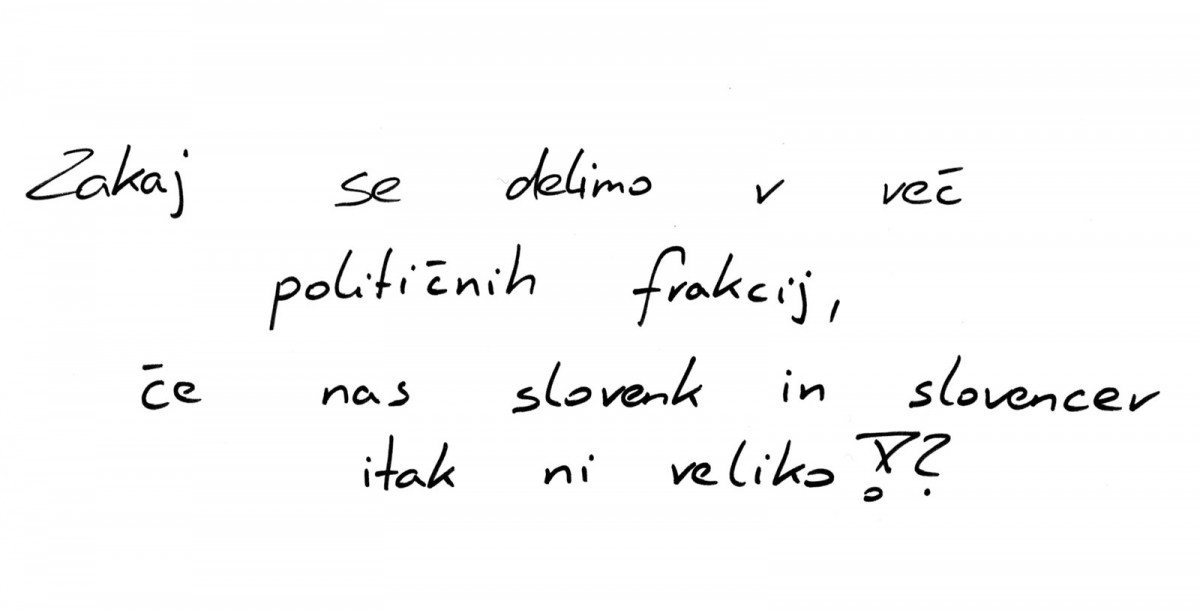 Zakaj se delimo v več
političnih frakcij,
če nas slovenk in slovencev
itak ni veliko!?